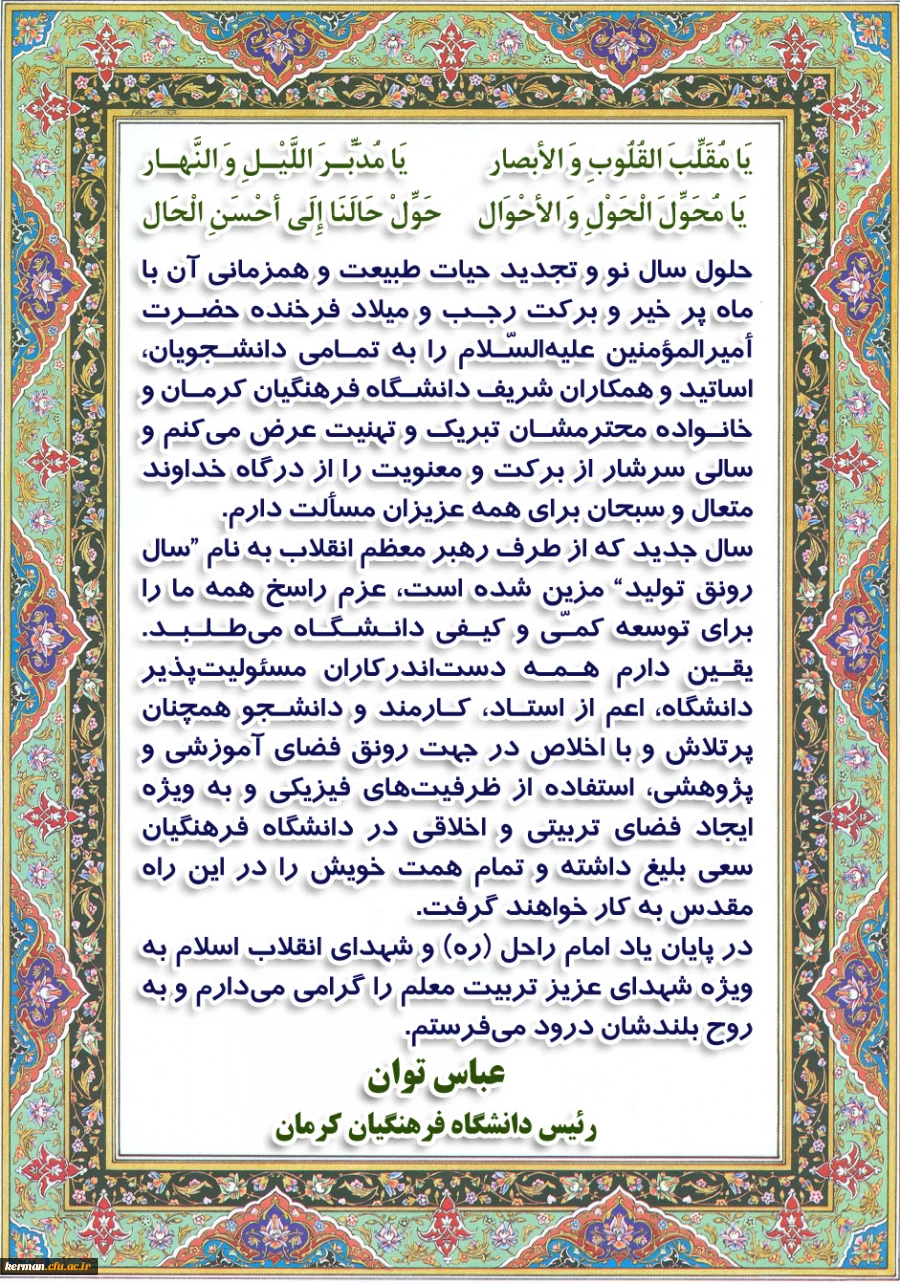 يَا مُقَلِّبَ القُلُوبِ وَ الأبصار يَا مُدَبِّـرَ اللَّيْـلِ وَ النَّهـار
يَا مُحَوِّلَ الْحَوْلِ وَ الأحْوَال حَوِّلْ حَالَنَا إِلَى أحْسَنِ الْحَال
حلول سال نو و تجدید حیات طبیعت و همزمانی آن با
ماه پر خیر و برکت رجـب و میلاد فرخنده حضـرت
أمیرالمؤمنین علیه‌السّـلام را به تمـامی دانشـجویان،
اساتید و همکاران شریف دانشـگاه فرهنگیان کرمـان و
خانـواده محترمشـان تبریک و تهنیت عرض می‌کنم و
سالی سرشار از برکت و معنویت را از درگاه خداوند
متعال و سبحان برای همه عزیزان مسألت دارم.
سال جدید که از طرف رهبر معظم انقلاب به نام ”سال
رونق تولید“ مزین شده است، عزم راسخ همه ما را
برای توسعه کمـّی و کیـفی دانـشـگـاه می‌طـلـبـد.
یقـین دارم هـمـه دست‌اندرکاران مسئولیت‌پذیر
دانشگاه، اعم از استـاد، کـارمند و دانشـجو همچنان
پرتلاش و با اخلاص در جهت رونق فضای آموزشی و
پژوهشی، استفاده از ظرفیت‌های فیزیکی و به ویژه
ایجاد فضای تربیتی و اخلاقی در دانشگاه فرهنگیان
سعی بلیغ داشته و تمام همت خویش را در این راه
مقدس به کار خواهند گرفت.
در پایان یاد امام راحل (ره) و شهدای انقلاب اسلام به
ویژه شهدای عزیز تربیت معلم را گرامی می‌دارم و به
روح بلندشان درود می‌فرستم.
عباس توان
رئیس دانشگاه فرهنگیان کرمان
kerman.cfu.ac.ir